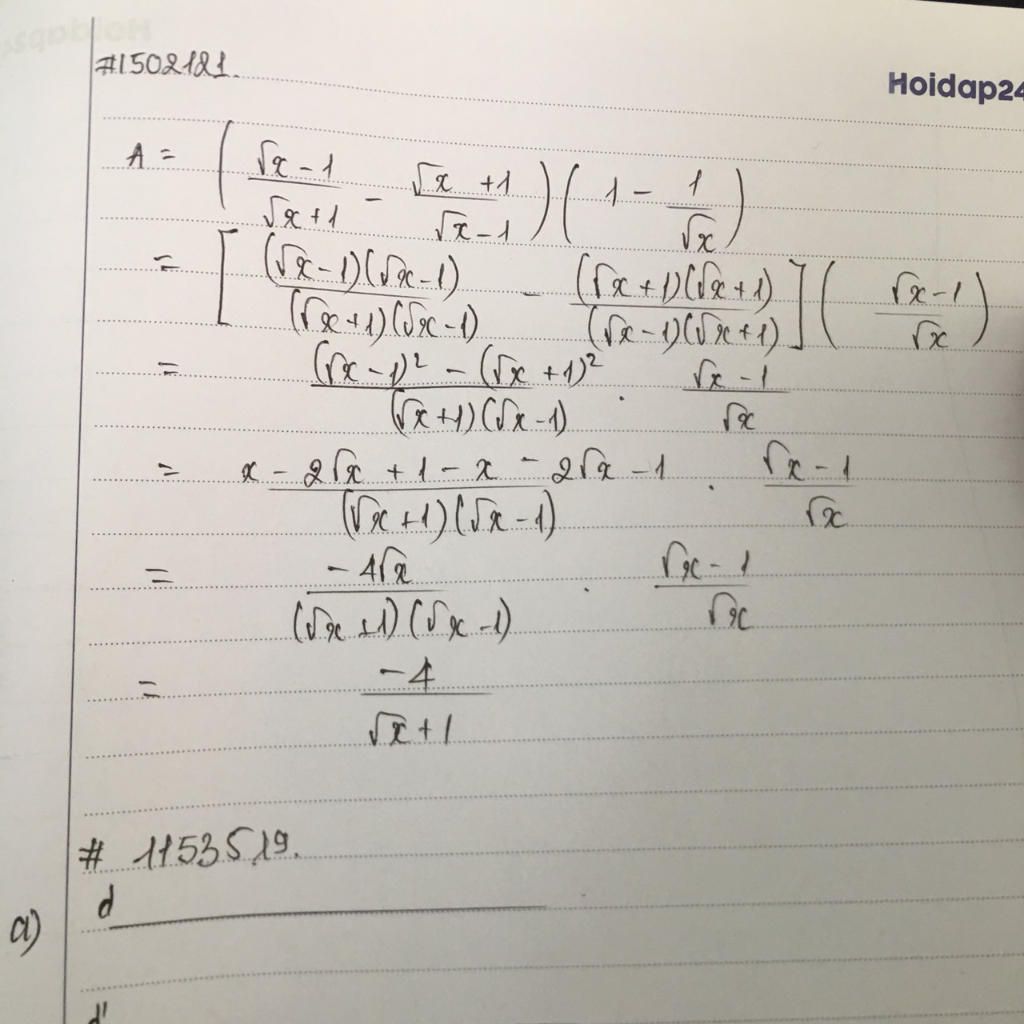 #1502121.
Hoidap24
A = ( (√x - 1)/(√x + 1) - (√x + 1)/(√x - 1) ) ( 1 - 1/√x )
= [ (√x - 1)(√x - 1)/(√x + 1)(√x - 1) - (√x + 1)(√x + 1)/(√x - 1)(√x + 1) ] ( (√x - 1)/√x )
= ((√x - 1)² - (√x + 1)²)/(√x + 1)(√x - 1) . (√x - 1)/√x
= (x - 2√x + 1 - x - 2√x - 1)/(√x + 1)(√x - 1) . (√x - 1)/√x
= -4√x/(√x + 1)(√x - 1) . (√x - 1)/√x
= -4/(√x + 1)
# 1153519.
a) d
d'